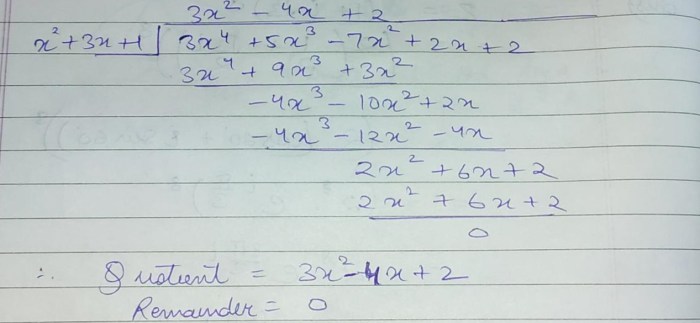 3x² - 4x + 2
x² + 3x + 1 | 3x⁴ + 5x³ - 7x² + 2x + 2
3x⁴ + 9x³ + 3x²
-4x³ - 10x² + 2x
-4x³ - 12x² - 4x
2x² + 6x + 2
2x² + 6x + 2
0
∴ Quotient = 3x² - 4x + 2
Remainder = 0